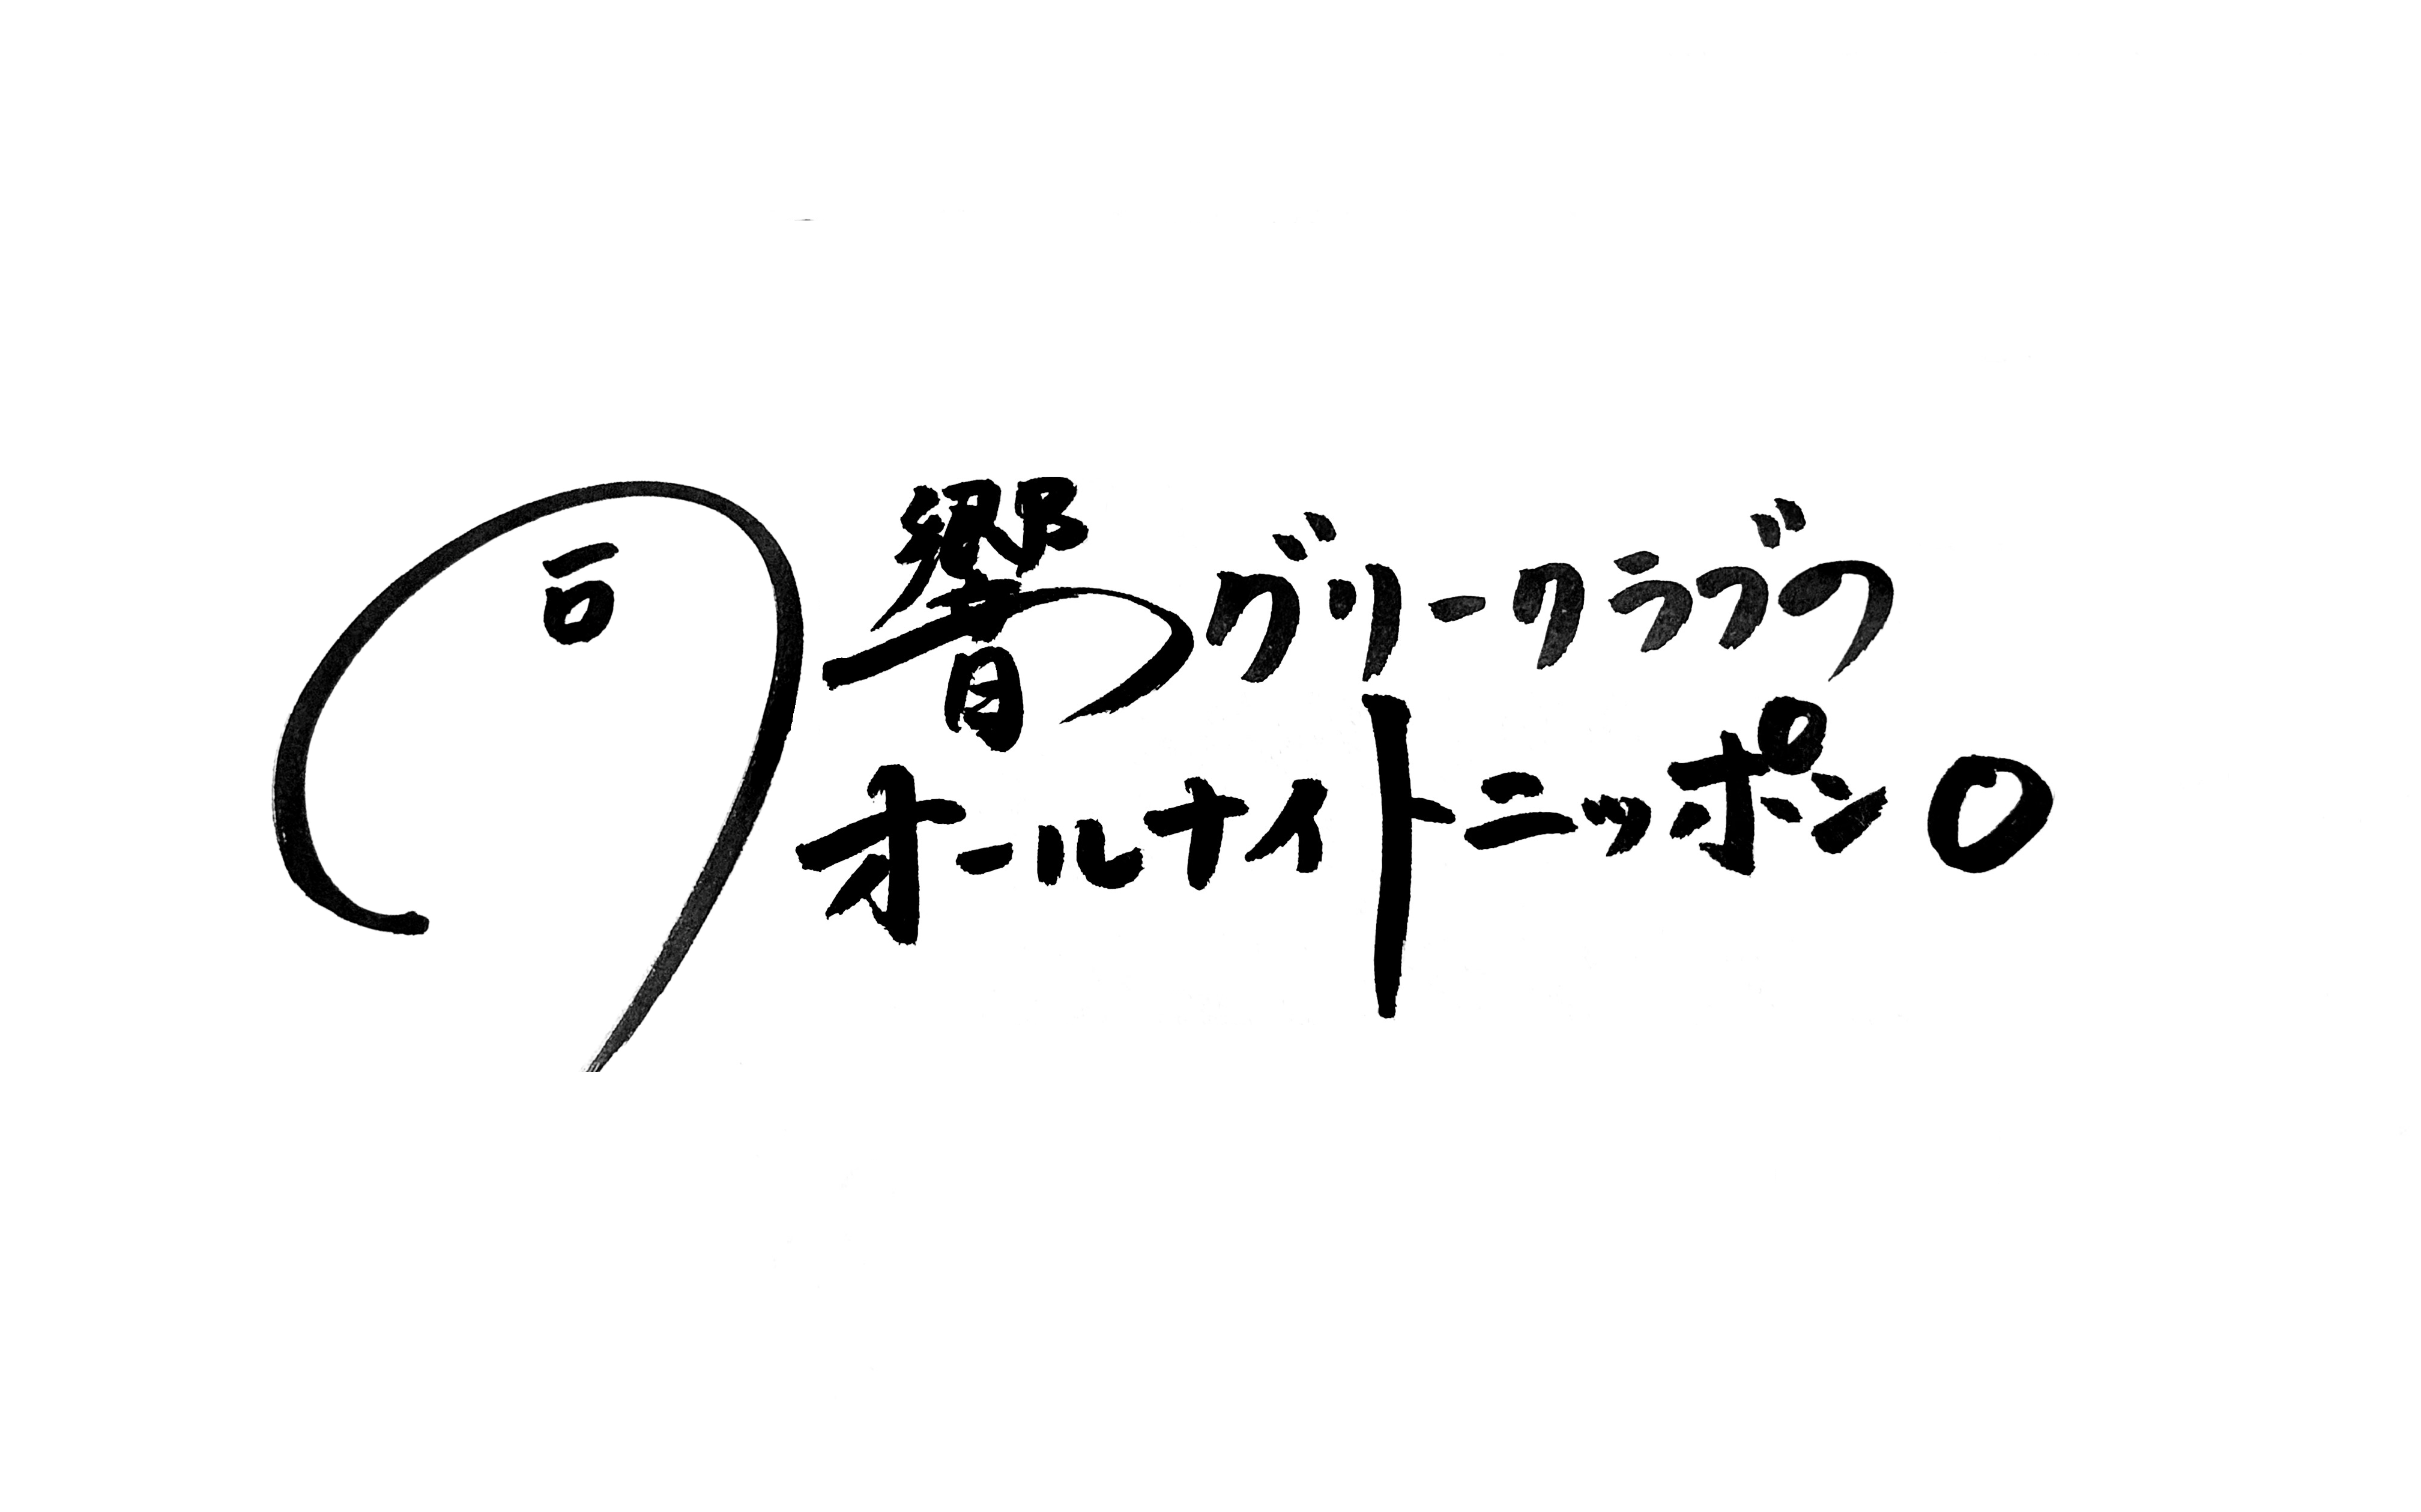 司 響グリークラブの
オールナイトニッポン0